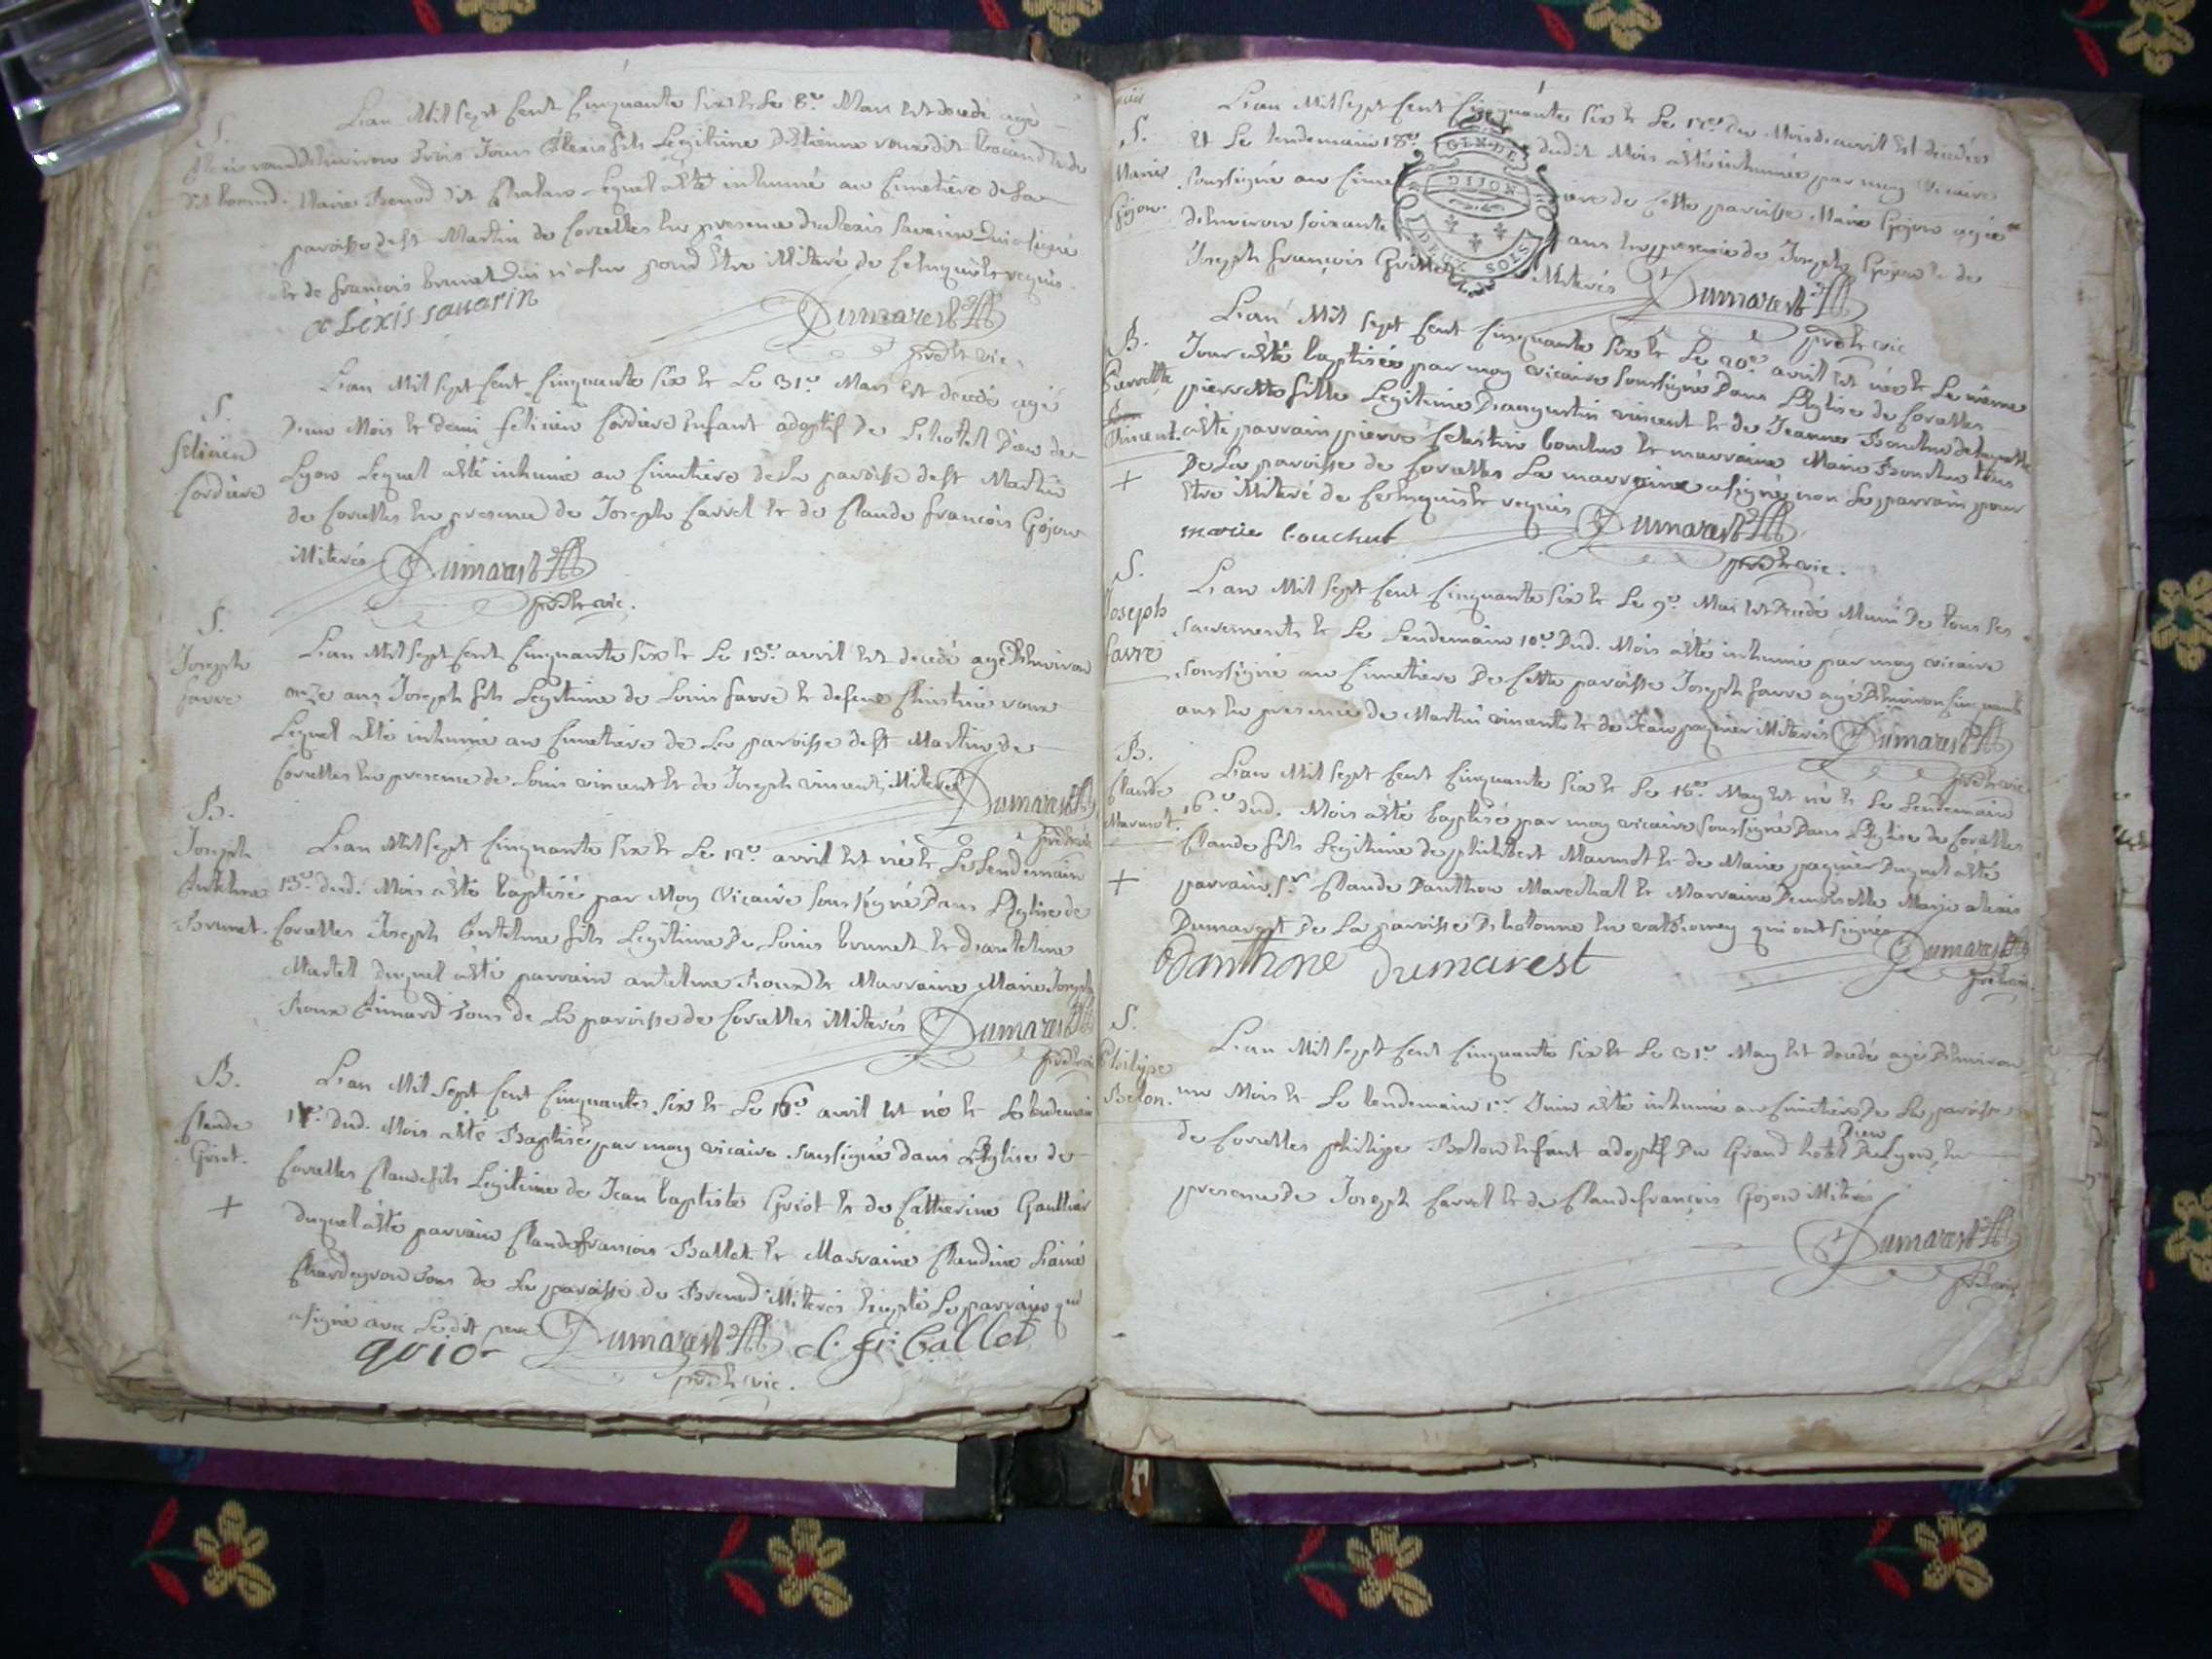 Lan Mil sept Cent Cinquante six & Le 8e Mars est decedé agé
S.
Denviron Trois Jours Alexis fils Legitime D'Etienne roux dit
dit
Marie Benod dit Lequel a été inhumé au Cimetiere de La
paroisse de St Martin de Corcelles En presence d'alexis savarin Qui a signé
& de françois brunet Qui n'a sur pour Etre illiteré de ce Enquis & requis
alexis sauarin
Dumarest
ptre & vic.
Lan Mil sept Cent Cinquante six & Le 31e Mars est decedé agé
S.
D'un Mois & demi felicien Cordiere Enfant adoptif De L'hotel Dieu de
felicien
Lyon Lequel a été inhumé au Cimetiere de La paroisse de St Martin
Cordiere
de Corcelles En presence de Joseph Carrel & de Claude françois Gojon
illiterés Dumarest
ptre & vic.
S.
Lan Mil sept Cent Cinquante six & Le 13e avril est decedé agé D'Environ
Joseph
onze ans Joseph fils Legitime de Louis favre & de Christine roux
favre
Lequel a été inhumé au Cimetiere de La paroisse de St Martin de
Corcelles En presence de Louis vincent & de Joseph vincent illiterés Dumarest
ptre & vic
B.
Joseph
Lan Mil sept Cinquante six & Le 12e avril est né & Le Lendemain
Antelme
13e dud. Mois a été baptisé par Moy Vicaire soussigné Dans L'Eglise de
Brunet.
Corcelles Joseph Antelme fils Legitime De Louis brunet & d'antelme
Martel duquel a été parrain antelme & Marraine Marie Joseph
tous de La paroisse de Corcelles illiterés Dumarest
ptre & vic
B.
Lan Mil sept Cent Cinquante six & Le 16e avril est né & Le Lendemain
Claude
17e dud. Mois a été Baptisé par moy vicaire soussigné dans L'Eglise de
Griot.
Corcelles Claude fils Legitime de Jean baptiste Griot & de Catherine Gaultier
+
duquel a été parrain Claude françois Ballet & Marraine Claudine
tous de La paroisse de Brenod illiterés Excepté Le parrain qui
a signé avec Ledit pere Dumarest cl. fr. ballet
ptre & vic.
Lan Mil sept Cent Cinquante six & Le 17e du Mois d'avril est decedée
S.
Et Le lendemain 18e dudit Mois a été inhumée par moy Vicaire
Marie
soussigné au Cimetiere de Cette paroisse Marie Gojon agée
Gojon.
d'Environ soixante ans En presence de Joseph Gojon & de
Joseph françois illiterés Dumarest
ptre & vic
GEN DE
DIJON
DEUX SOLS
Lan Mil sept Cent Cinquante six & Le 20e avril est née & Le même
B.
Jour a été baptisée par moy vicaire soussigné Dans L'Eglise de Corcelles
Pierrette
pierrette fille Legitime D'augustin vincent & de Jeanne
Vincent.
a été parrain pierre Celestin & marraine Marie tous
+
De La paroisse de Corcelles La marraine a signé non Le parrain pour
Etre illiteré de ce Enquis & requis Dumarest
marie bouchut
ptre & vic.
S.
Lan Mil sept Cent Cinquante six & Le 9e Mai est Decedé Muni De tous ses
Joseph
sacrements & Le Lendemain 10e Dud. Mois a été inhumé par moy vicaire
favre
soussigné au Cimetiere De Cette paroisse Joseph favre agé D'Environ Cinquante
ans En presence de Martin vincent & de Jean illiterés Dumarest
ptre & vic.
B.
Lan Mil sept Cent Cinquante six & Le May est né & Le Lendemain
Claude
16e dud. Mois a été baptisé par moy vicaire soussigné Dans L'Eglise de Corcelles
Marmot.
Claude fils Legitime de philibert Marmot & de Marie paquier Duquel a été
+
parrain Sr Claude Danthon Marechal & Marraine Demoiselle Marie alexis
Dumarest De La paroisse D'hotonne En valromey qui ont signés Dumarest
Danthone Dumarest
S.
Lan Mil sept Cent Cinquante six & Le 31e May est decedé agé D'Environ
Philipe
un Mois & Le Lendemain 1er Juin a été inhumé au Cimetiere De La paroisse
Belon.
de Corcelles philipe Belon Enfant adoptif Du Grand hotel Dieu De Lyon, En
presence de Joseph Carrel & de Claude françois Gojon illiterés
Dumarest
ptre & vic